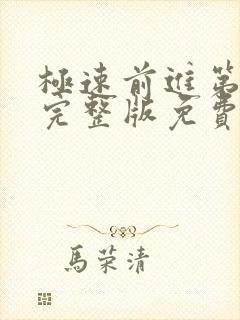 極速前進第
完整版免費
馬荣清